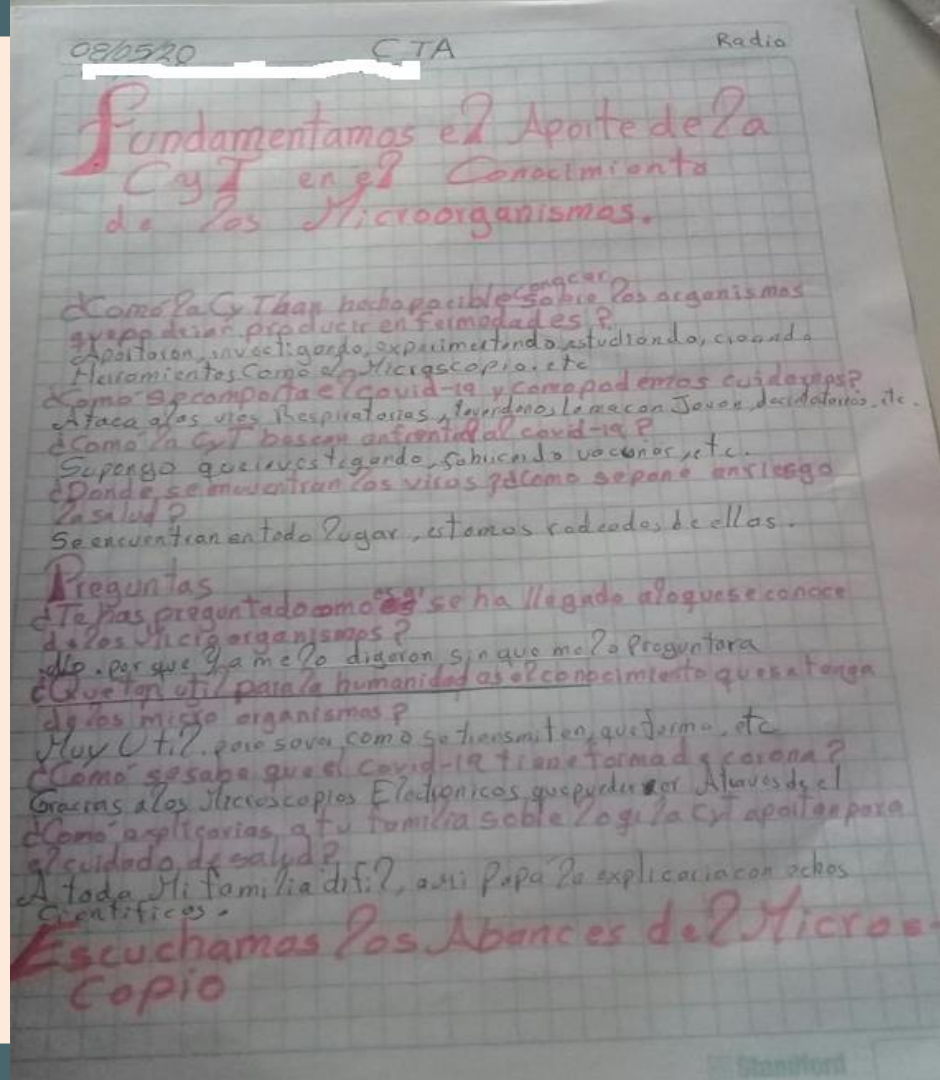 08/05/20 CTA Radio
Fundamentamos el Aporte de la
CyT en el Conocimiento
de los Microorganismos.
¿Como la CyT han hecho pocible conocer sobre los organismos
que podrian producir enfermedades?
Aportaron, investigando, experimentando, estudiando, creando
Herramientas Como el Microscopio, etc
¿Como se comporta el covid-19 y como podemos cuidarnos?
Ataca a las vies Respiratorias, laverdonos la mano con Javon, etc.
¿Como la CyT boscan enfrentar al covid-19?
Supongo que investigando, fabricando vacunas, etc.
¿Donde se encuentran los virus? ¿Como se pone en riesgo
la salud?
Se encuentran en todo lugar, estamos rodeados de ellos.
Preguntas
¿Te has preguntado como es q' se ha llegado a lo que se conoce
de los Microorganismos?
No. por que ya me lo digeron sin que me lo Preguntara
¿Que tan util para la humanidad es el conocimiento que se tenga
de los micro organismos?
Muy Util. para saver como se transmiten, que forma, etc
¿Como se sabe que el covid-19 tiene forma de corona?
Gracias a los Microscopios Electronicos, que pueden ver Atraves de el
¿Como explicarias a tu familia sobre lo q' la CyT aportan para
el cuidado de salud?
A toda Mi familia dificil, a mi Papa lo explicaria con echos
Cientificos.
Escuchamos los Abances del Micros-
copio
Standford